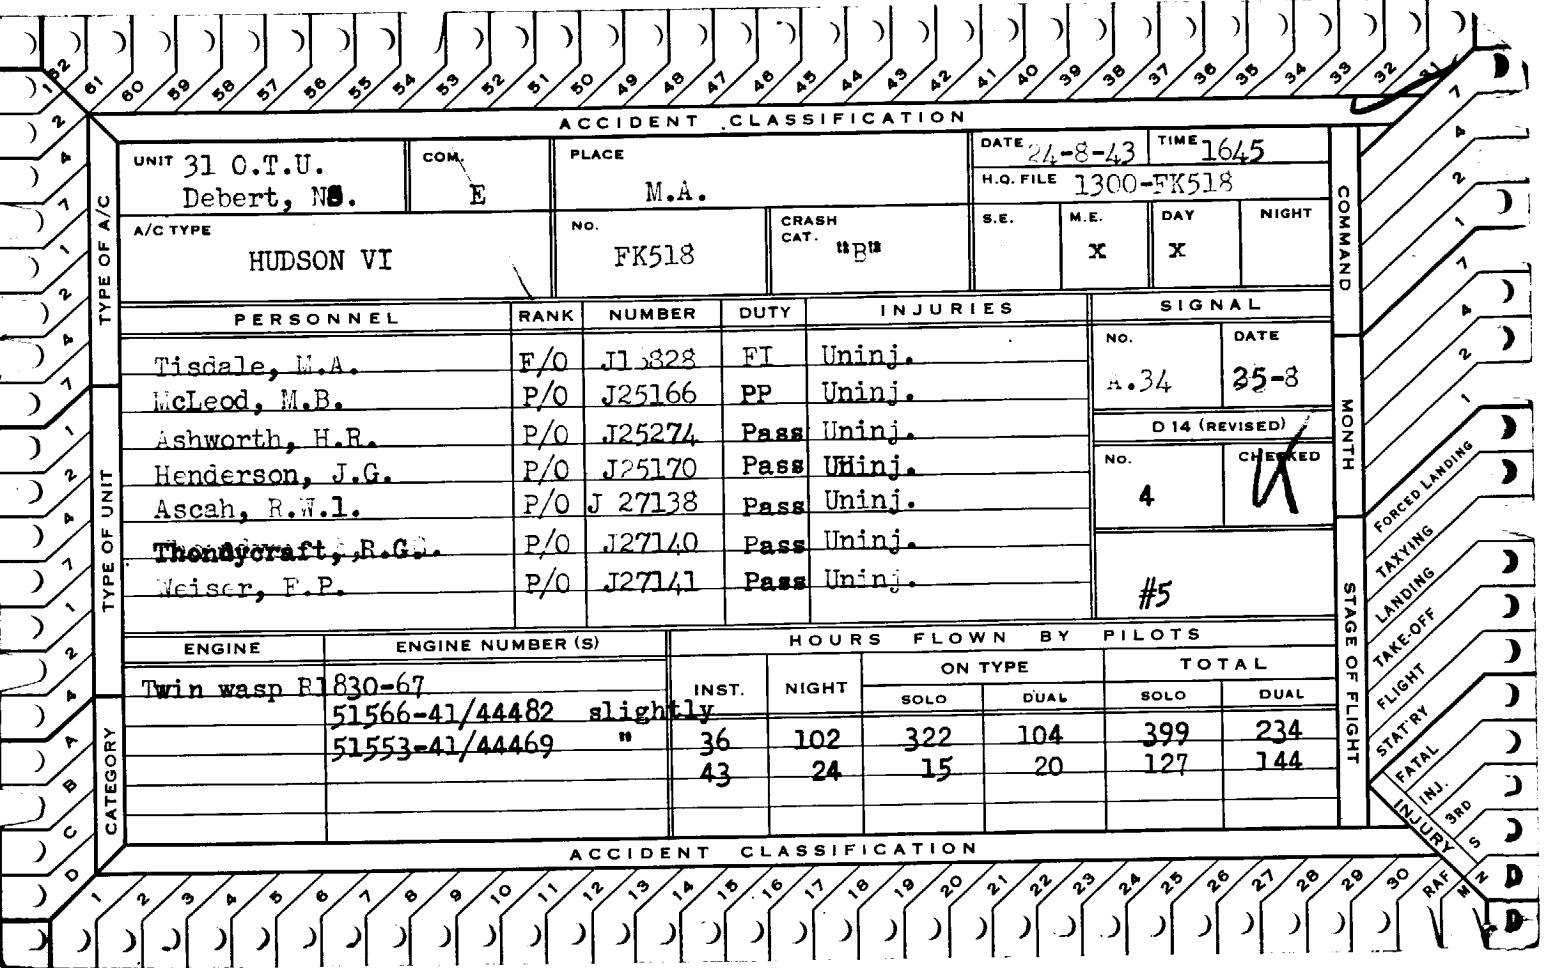 62 61 60 59 58 57 56 55 54 53 52 51 50 49 48 47 46 45 44 43 42 41 40 39 38 37 36 35 34 33 32 31
ACCIDENT CLASSIFICATION
UNIT 31 O.T.U.
Debert, NS.
COM.
E
PLACE
M.A.
DATE 24-8-43 TIME 1645
H.Q. FILE 1300-FK518
A/C TYPE
HUDSON VI
NO.
FK518
CRASH
CAT. "B"
S.E. M.E. DAY NIGHT
X X
PERSONNEL RANK NUMBER DUTY INJURIES SIGNAL
Tisdale, M.A. F/O FI Uninj.
McLeod, M.B. P/O J25166 PP Uninj.
Ashworth, H.R. P/O J25274 Pass Uninj.
Henderson, J.G. P/O J25170 Pass Uninj.
Ascah, R.W.l. P/O J 27138 Pass Uninj.
R.G. P/O J27140 Pass Uninj.
Weiser, F.P. P/O J27141 Pass Uninj.
NO. DATE
A.34 25-8
D 14 (REVISED)
NO. CHECKED
4
#5
ENGINE ENGINE NUMBER (S)
Twin wasp R1830-67
51566-41/44482 slightly
51553-41/44469 "
HOURS FLOWN BY PILOTS
INST. NIGHT ON TYPE TOTAL
SOLO DUAL SOLO DUAL
36 102 322 104 399 234
43 24 15 20 127 144
ACCIDENT CLASSIFICATION
TYPE OF A/C
TYPE OF UNIT
CATEGORY
1 2 4 7 1 2 4 7 1 2 4 7 1 2 4 A B C D
COMMAND
MONTH
STAGE OF FLIGHT
7 4 2 1 7 4 2 1
FORCED LANDING
TAXYING
LANDING
TAKE-OFF
FLIGHT
STAT'RY
FATAL
INJ.
3RD
INJURY
S
N
M
RAF
1 2 3 4 5 6 7 8 9 10 11 12 13 14 15 16 17 18 19 20 21 22 23 24 25 26 27 28 29 30